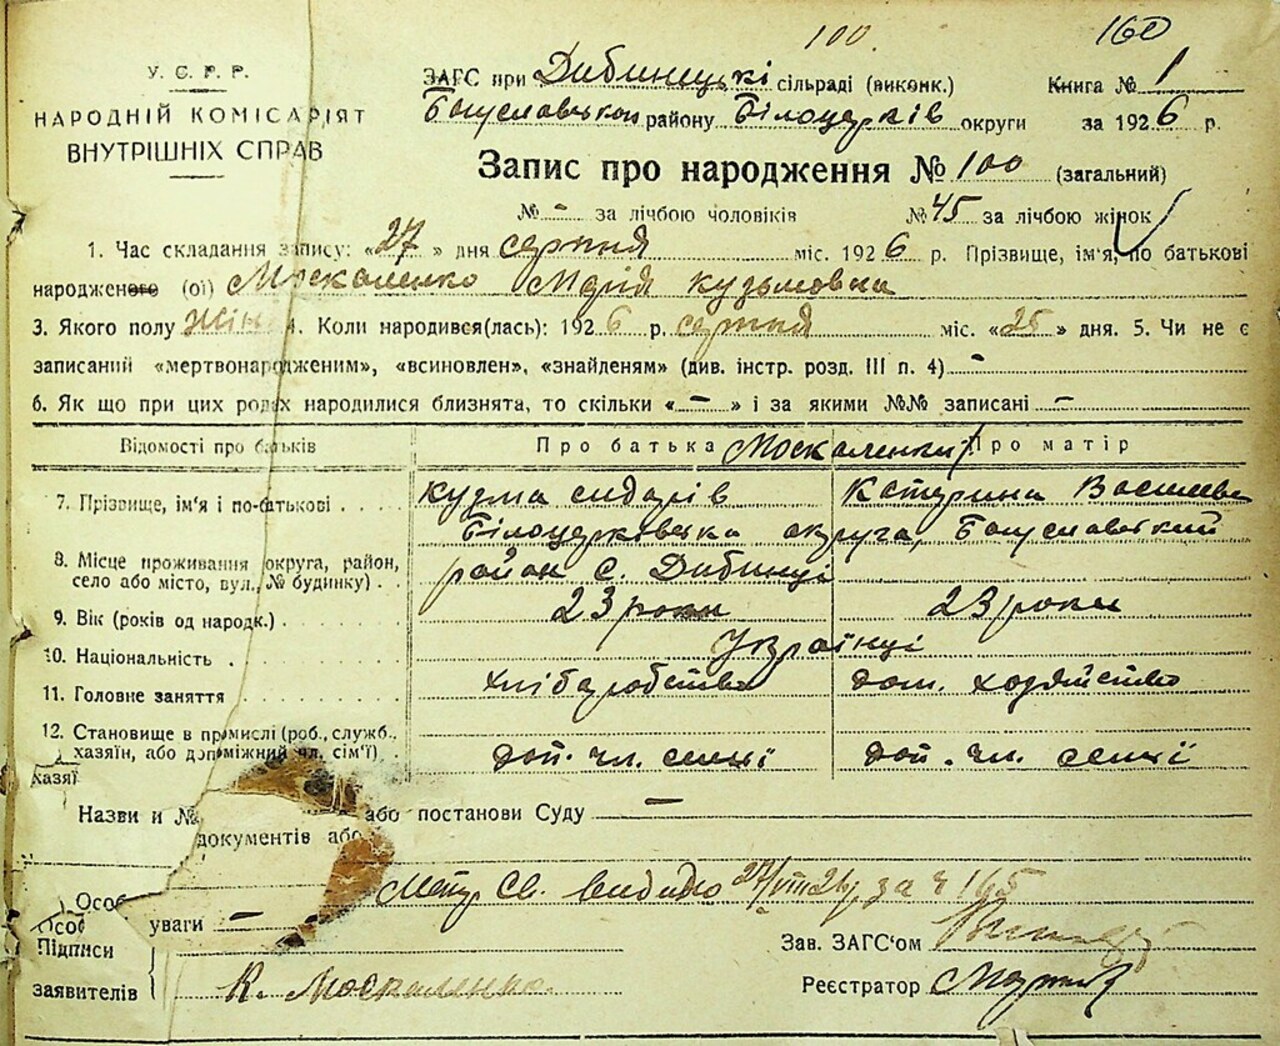 100.
160
У. С. Р. Р.
НАРОДНІЙ КОМІСАРІЯТ
ВНУТРІШНІХ СПРАВ
ЗАГС при Дибинецькі сільраді (виконк.) Книга № 1
Богуславськом району Білоцерків округи за 1926 р.
Запис про народження № 100 (загальний)
№ - за лічбою чоловіків № 45 за лічбою жінок
1. Час складання запису: «27» дня серпня міс. 1926 р. Прізвище, ім'я, по батькові
народженого (ої) Москаленко Марія Кузьмовна
3. Якого полу Жін 4. Коли народився(лась): 1926 р. серпня міс. «25» дня. 5. Чи не є
записаний «мертвонародженим», «всиновлен», «знайденям» (див. інстр. розд. III п. 4) -
6. Як що при цих родах народилися близнята, то скільки «-» і за якими №№ записані -
Відомості про батьків Про батька Москаленки Про матір
7. Прізвище, ім'я і по-батькові Кузма Сидорів Катерина Василева
Білоцерківська округа, Богуславський
8. Місце проживання округа, район, село або місто, вул., № будинку) район с. Дибинці
9. Вік (років од народж.) 23 роки 23 роки
10. Національність Українці
11. Головне заняття хліборобство дом. хозяйство
12. Становище в промислі (роб., служб.,
хазяїн, або допоміжний чл. сім'ї) доп. чл. семії доп. чл. семії
хазяї
Назви и № або постанови Суду -
документів або
Метр. Св. видано 27/VIII 26 р. за № 165
Особ
Особ уваги -
Підписи
заявителів К. Москаленко.
Зав. ЗАГС'ом
Реєстратор